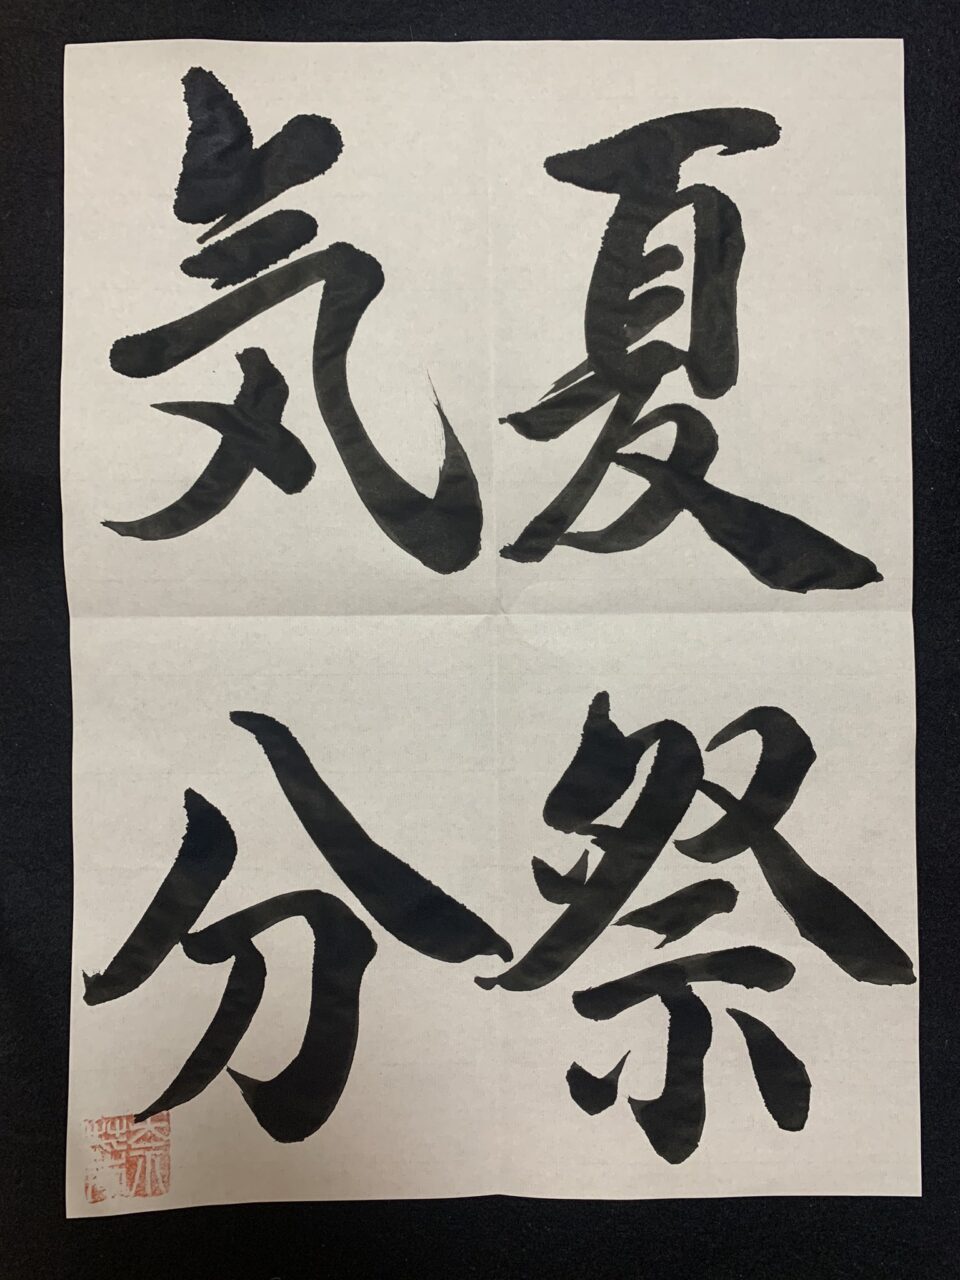 夏祭
気分